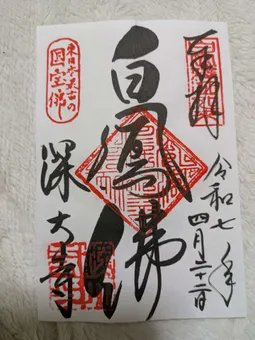 奉拝
令和七年
四月二十二日
白鳳佛
東日本最古の
国宝佛
深大寺